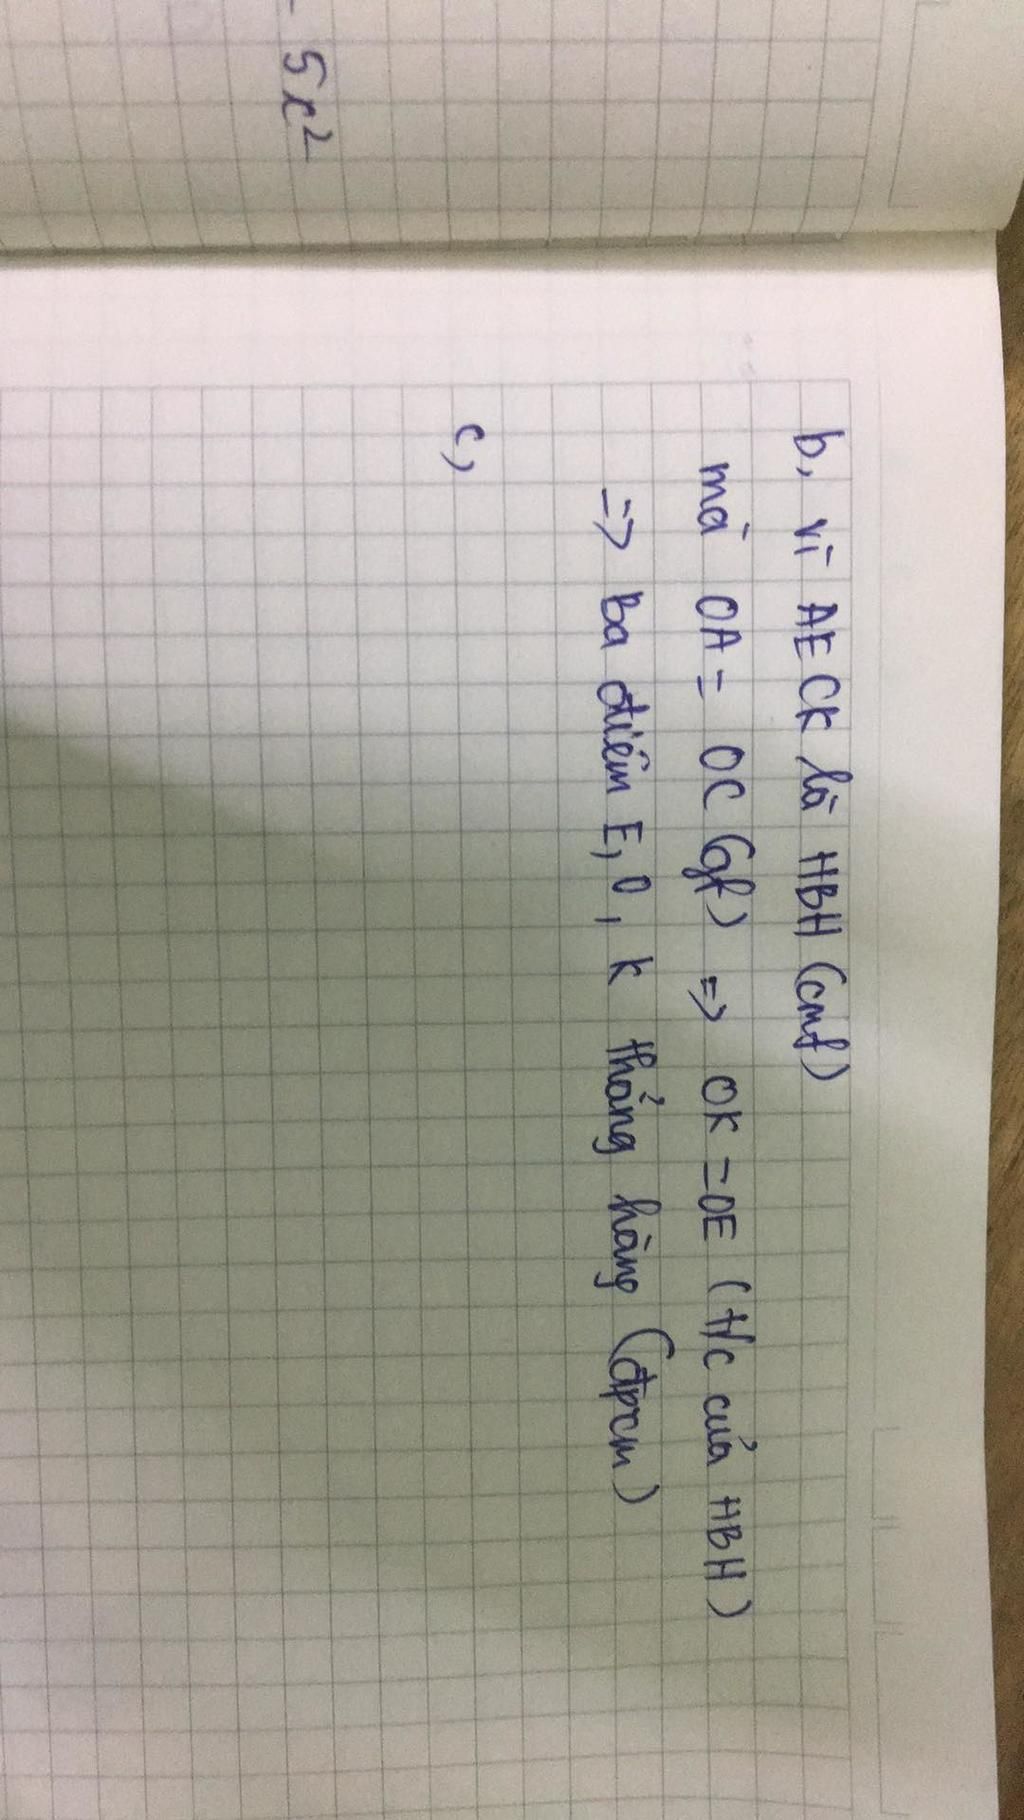 - 5x²
b, vì AECK là HBH (cmt)
mà OA = OC (gt) => OK = OE (t/c của HBH)
=> Ba điểm E, O, K thẳng hàng (đpcm)
c,